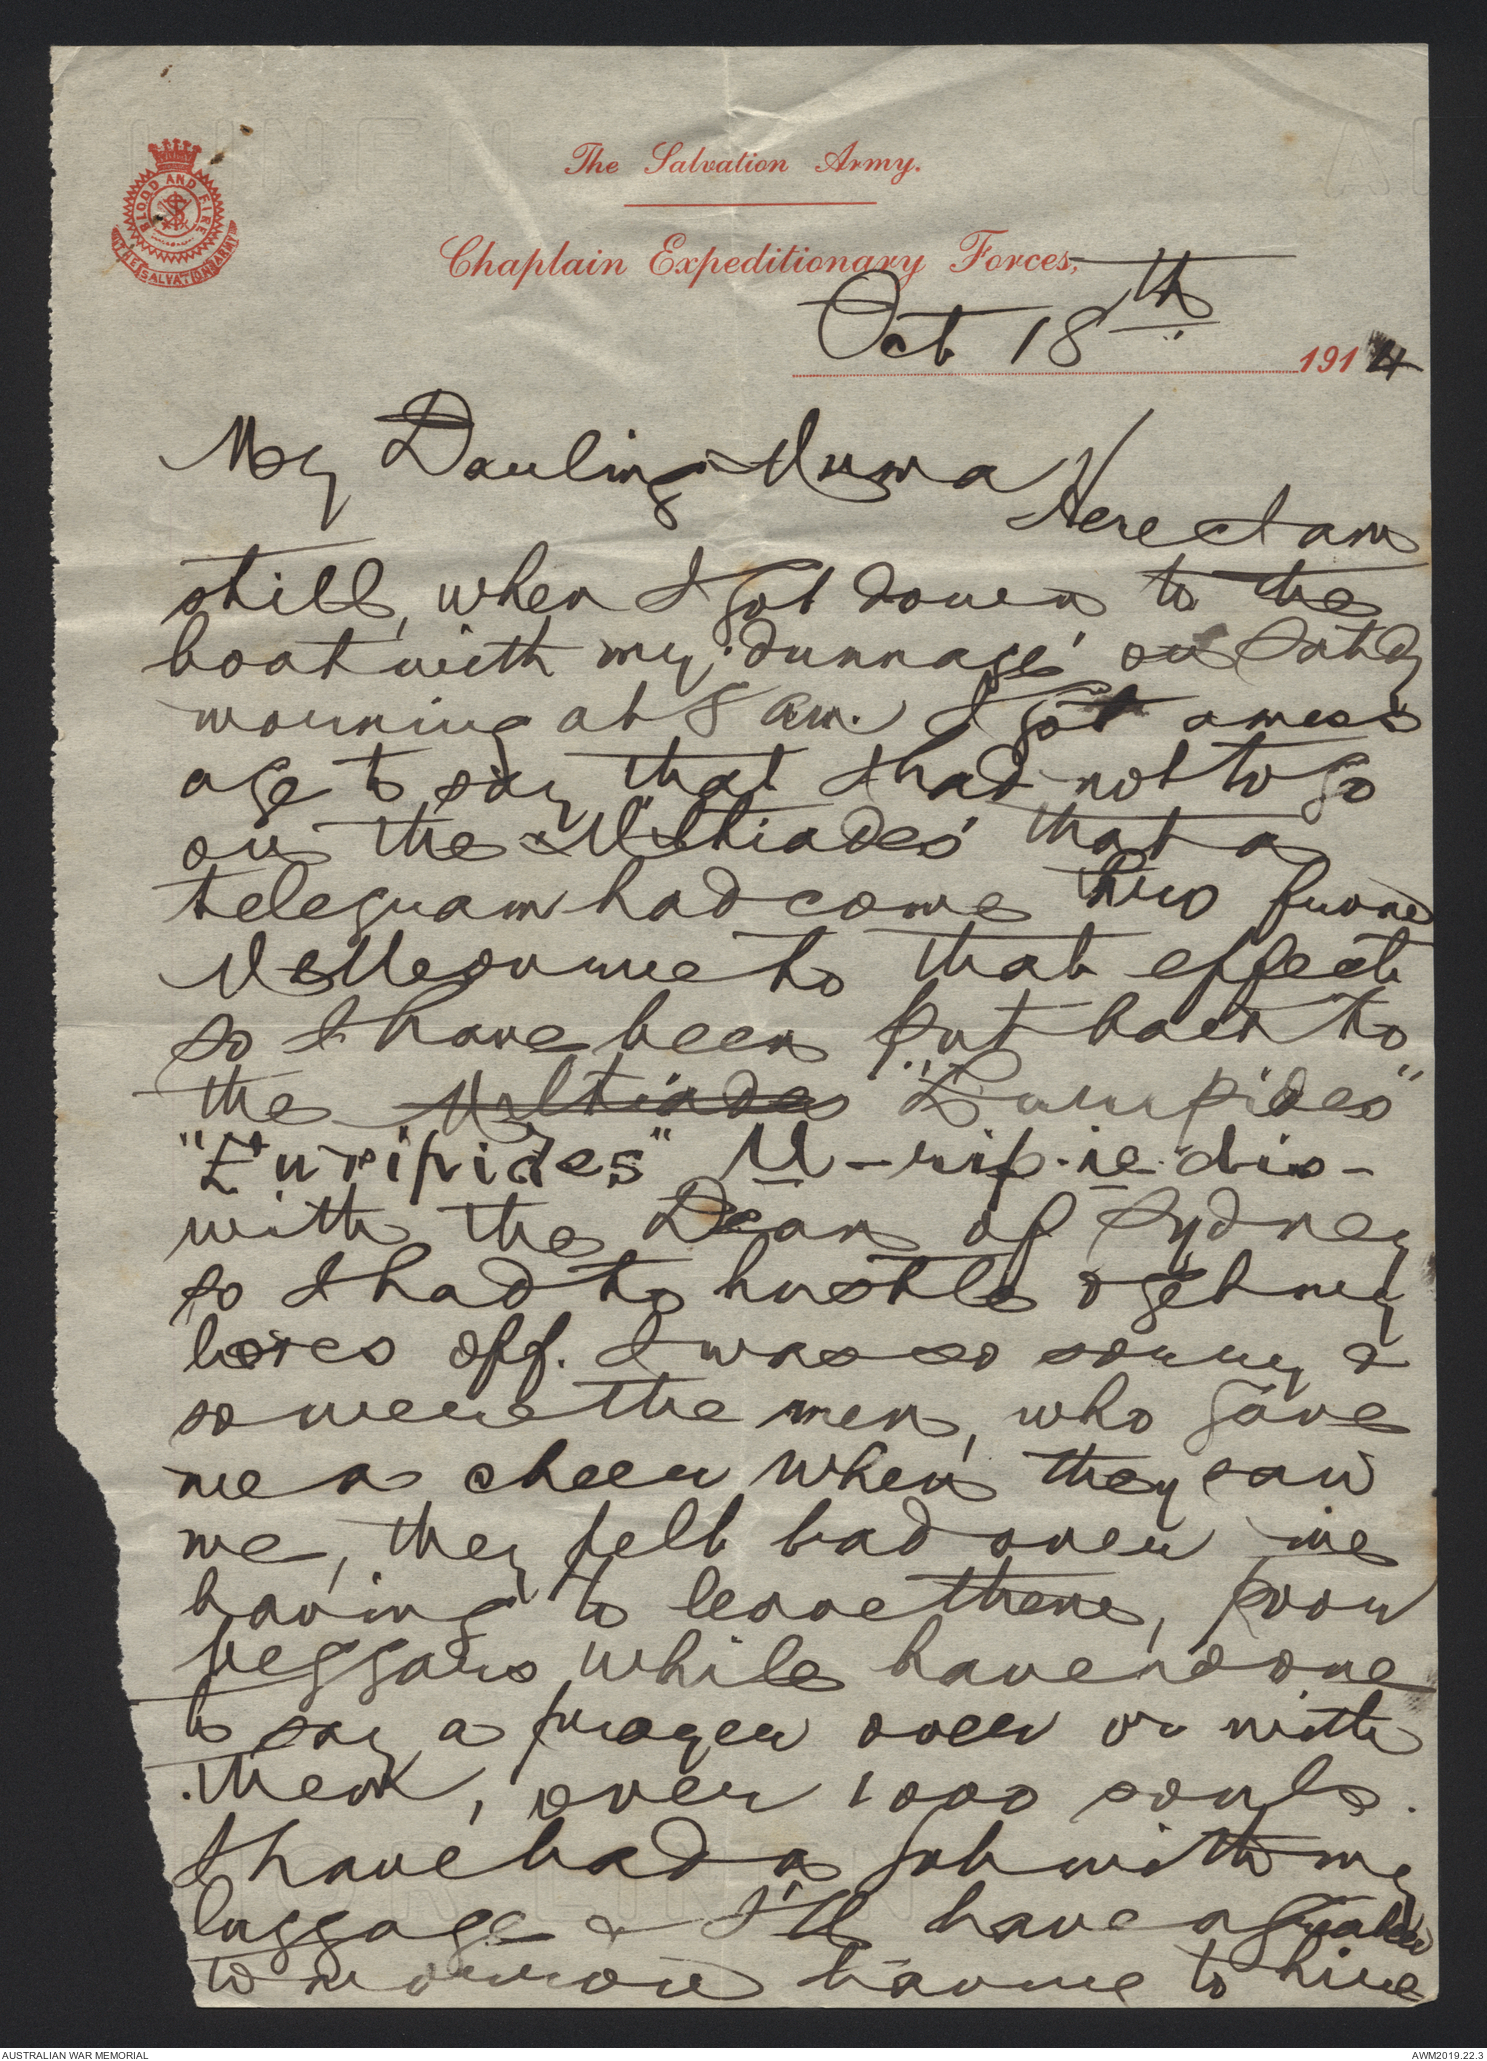 BLOOD AND FIRE
THE SALVATION ARMY
The Salvation Army.
Chaplain Expeditionary Forces,
Oct 18th 1914
My Darling Muma
Here I am
still, when I got down to the
boat with my 'dunnage' on Satdy
morning at 8 am. I got a mess
age to say that I had not to go
on the "Miltiades" that a
telegram had come thro from
Melbourne to that effect
so I have been put back to
the Miltiades "Euripides"
"Euripides" U-rip-ie-dis-
with the Dean of Sydney
so I had to hustle & get my
boxes off. I was so sorry &
so were the men, who gave
me a cheer when they saw
me, they felt bad over me
having to leave them, poor
beggars while have no one
to say a prayer over or with
them, over 1000 souls.
I have had a job with my
luggage & I'll have a greater
tomorrow having to hire
AUSTRALIAN WAR MEMORIAL
AWM2019.22.3